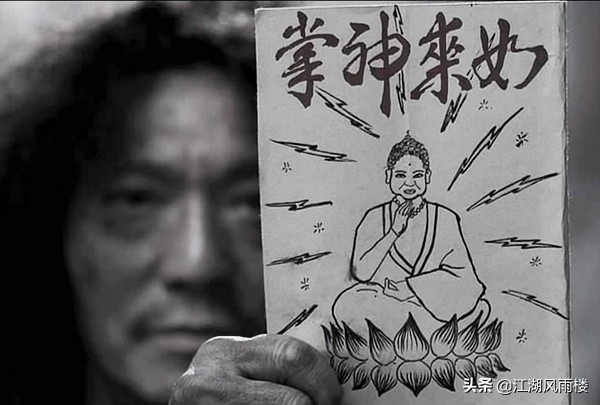 如來神掌
头条 @江湖风雨楼